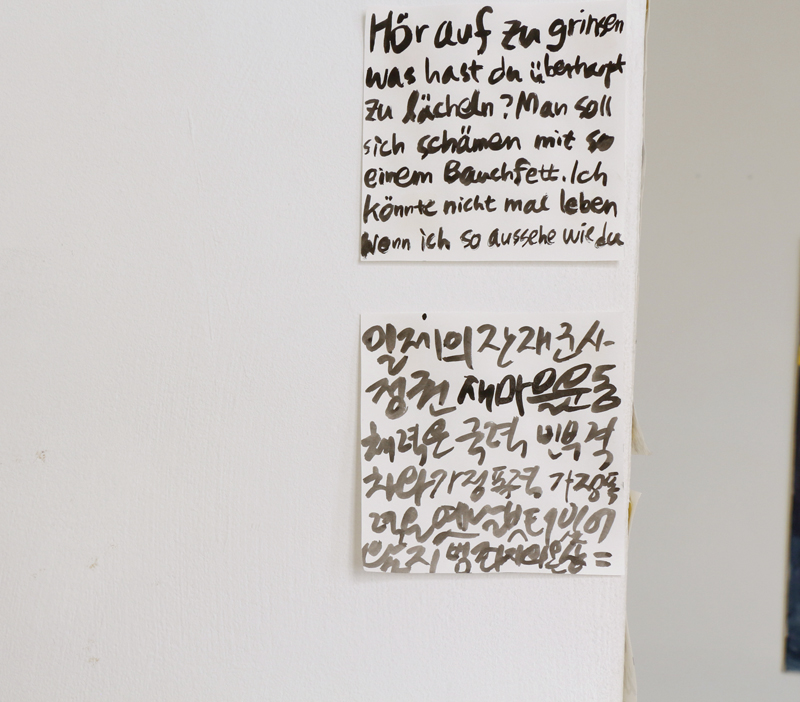 Hör auf zu grinsen
was hast du überhaupt
zu lächeln? Man soll
sich schämen mit so
einem Bauchfett. Ich
könnte nicht mal leben
wenn ich so aussehe wie du
일제의 잔재 군사
정권 새마을운동
체력은 국력 빈부격
차와 가정폭력 가정폭
력은 옛날부터 많이
있지